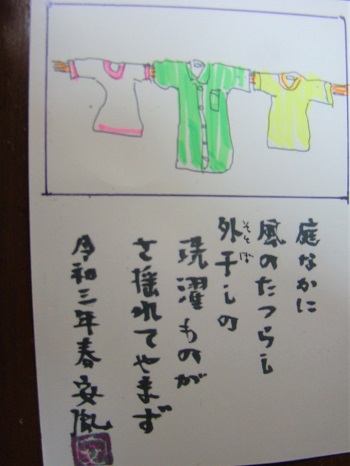 庭なかに
風のたつらし
外干しの
そとぼ
洗濯ものが
さ揺れてやまず
令和三年春 安胤